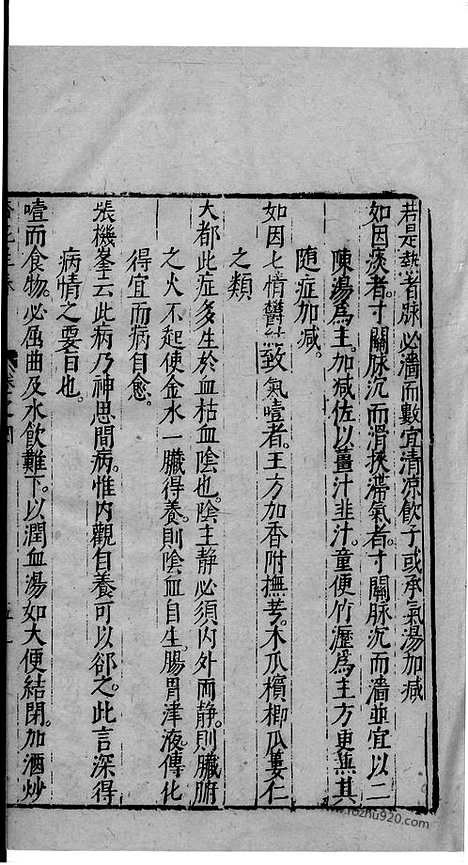 若是熱者脉必濇而數宜清凉飲子或承氣湯加減
如因痰者寸關脉沉而滑挾滯氣者寸關脉沉而濇並宜以二
陳湯為主加減佐以薑汁韭汁童便竹瀝為主方更無其
随症加減
如因七情欝結致氣噎者王方加香附撫芎木瓜檳榔瓜蔞仁
之類
大都此症多生於血枯血陰也陰主静必須内外両静則臟腑
之火不起使金水一臟得養則陰血自生腸胃津液傳化
得宜而病自愈
張機峯云此病乃神思間病惟内觀自養可以郤之此言深得
病情之要旨也
噎而食物必屈曲及水飲難下以潤血湯如大便結閉加酒炒
卷之四
www.fozhu920.com